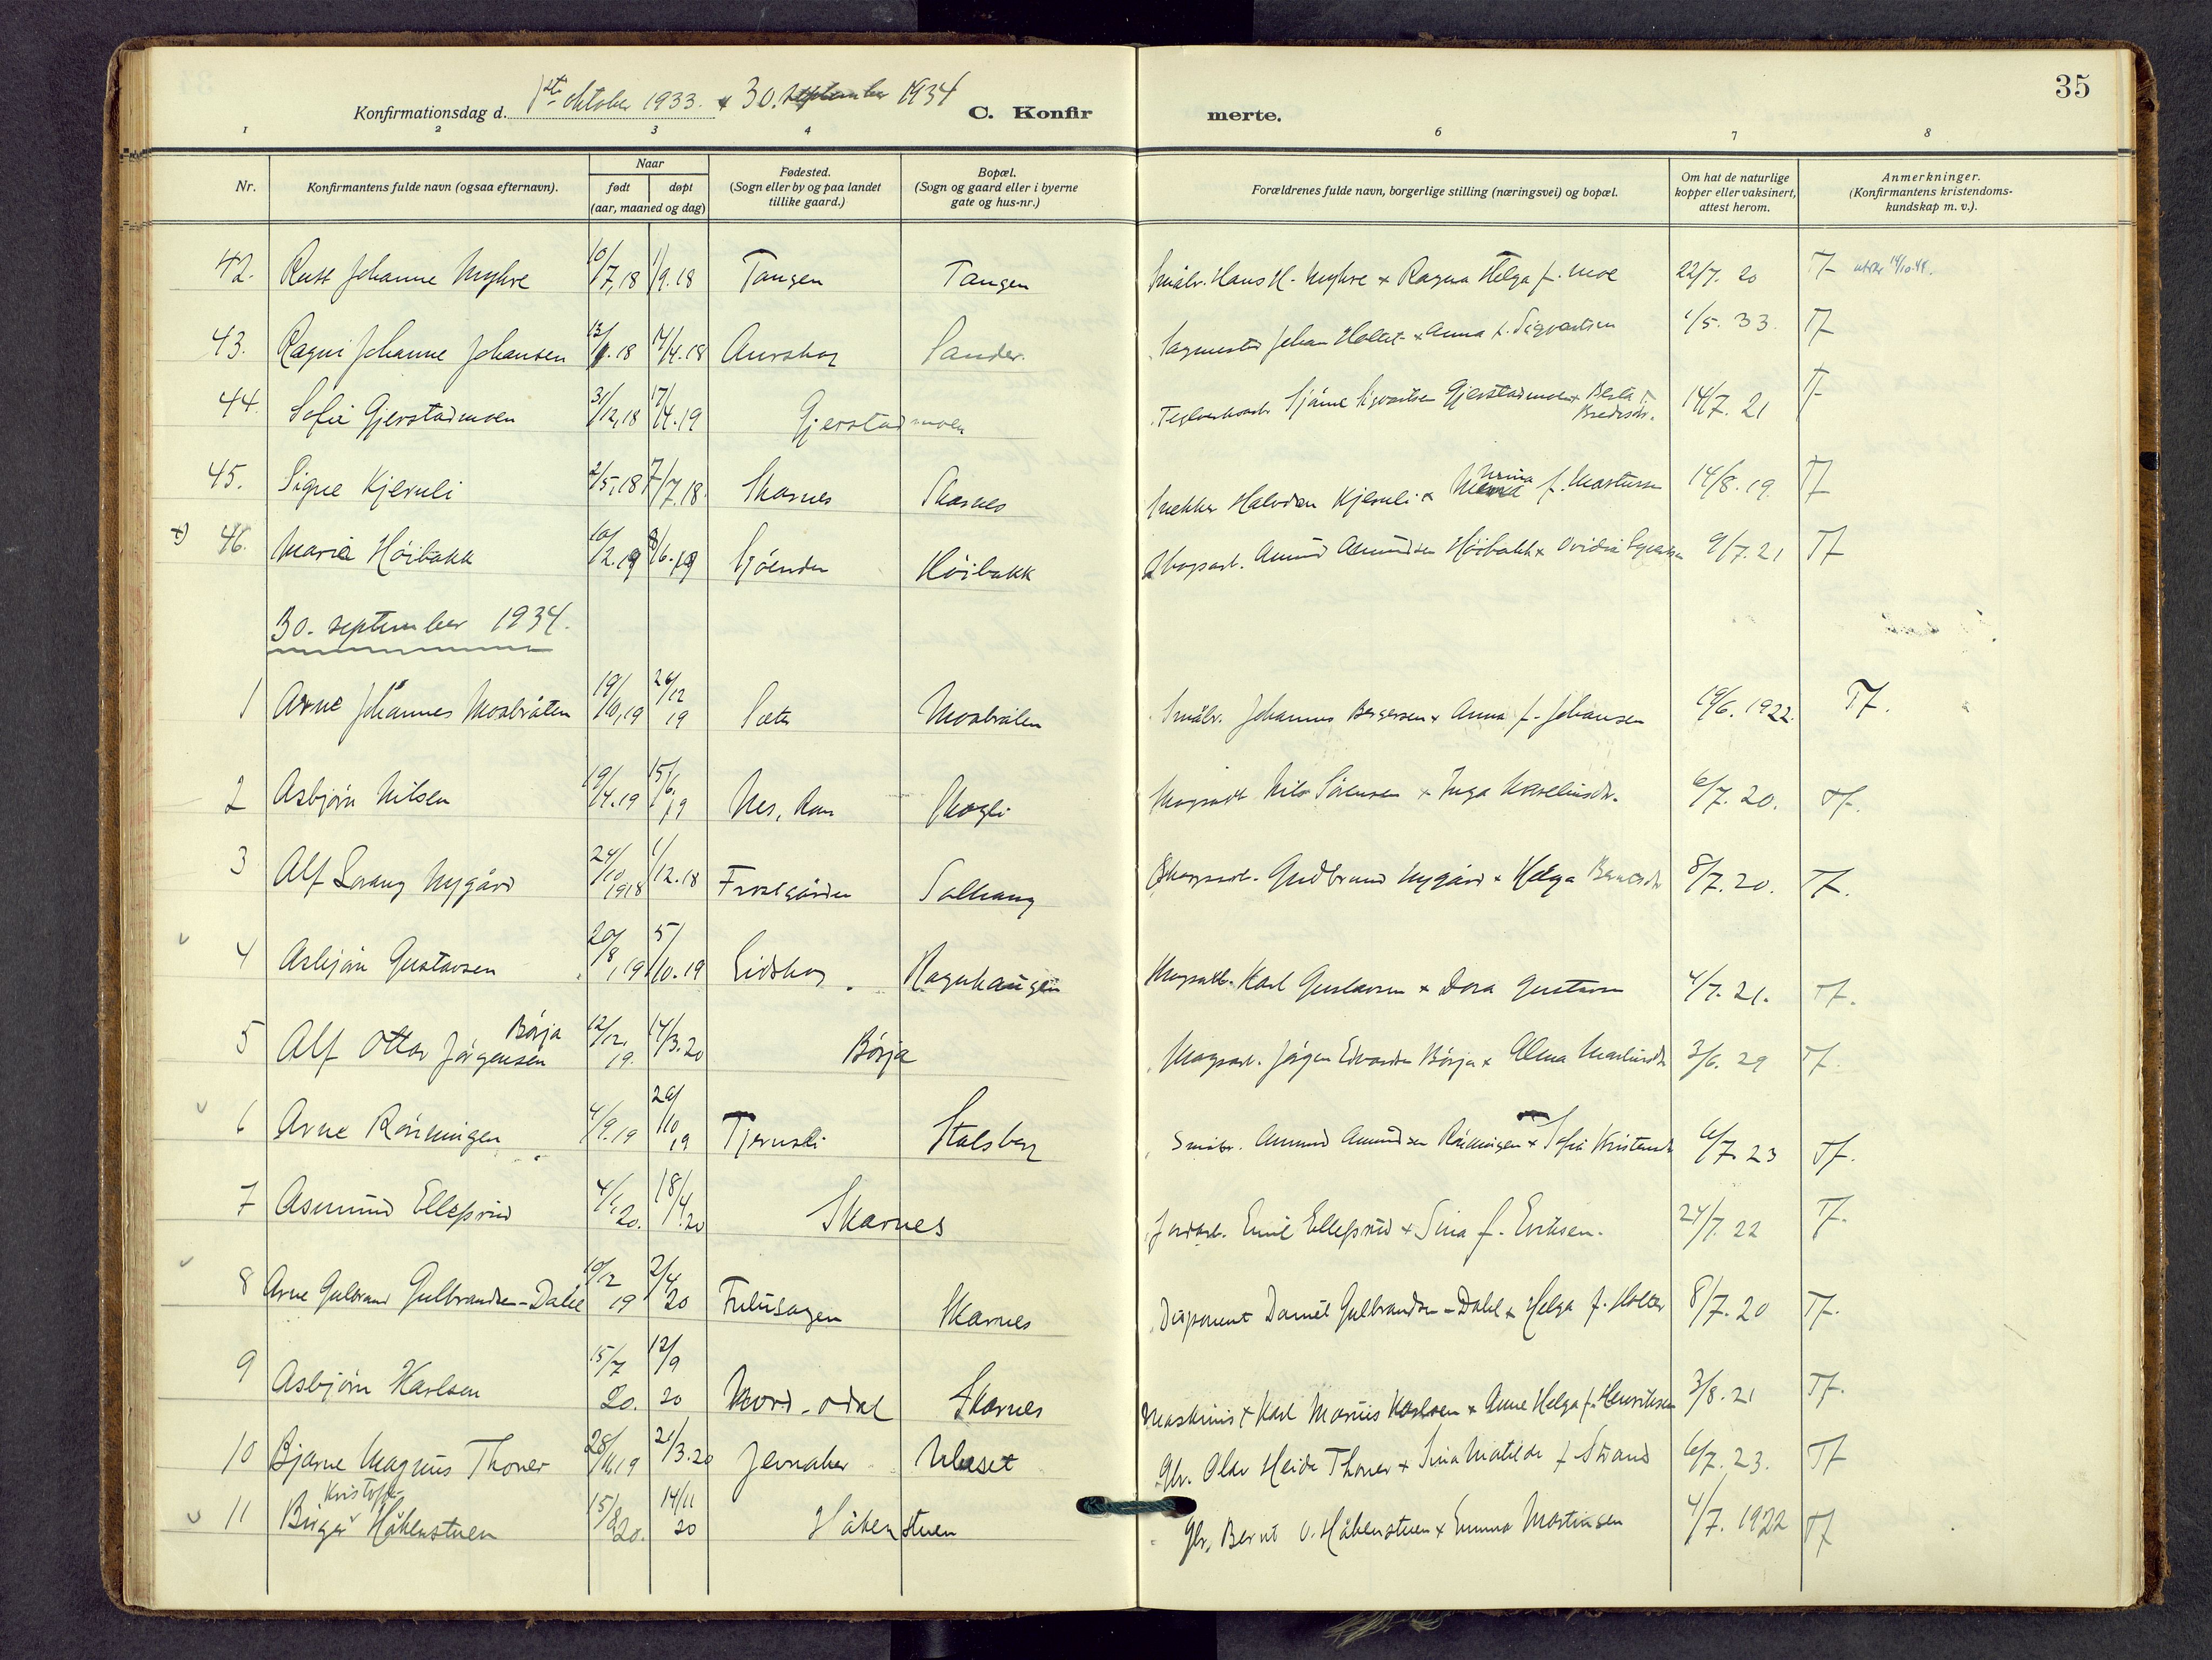 35
Konfirmationsdag d. 1ste oktober 1933. + 30. september 1934 C. Konfir merte.
1 2 3 4 6 7 8
Nr. Konfirmantens fulde navn (ogsaa efternavn). Naar født døpt (aar, maaned og dag) Fødested. (Sogn eller by og paa landet tillike gaard.) Bopæl. (Sogn og gaard eller i byerne gate og hus-nr.) Forældrenes fulde navn, borgerlige stilling (næringsvei) og bopæl. Om hat de naturlige kopper eller vaksinert, attest herom. Anmerkninger. (Konfirmantens kristendoms-kundskap m. v.).
42. Rutt Johanne Myhre 10/7,18 1/9.18 Tangen Tangen Småbr. Hans H. Myhre + Ragna Helga f. Moe 22/7. 20 Tf
43. Ragni Johanne Johansen 14/4.18 Aurskog Sander. Sagmester Johan Holtet + Anna f. Sigvartsen 1/5. 33. Tf
44. Sofie Gjerstadmoen 31/12,18 17/4.19 Gjerstadmoen Gjerstadmoen + Berta Bredesdr. 14/7. 21 Tf
45. Signe Kjernli 2/5,18 7/7.18. Skarnes Skarnes Snekker Halvdan Kjernli + f. Martinsen 14/8. 19. Tf
+) 46. Marie Höibakk 10/2.19 8/6.19 Sjöenden Höibakk Skogsarb. Amund Amundsen Höibakk + Ovidia 9/7. 21 Tf
30. september 1934.
1 Arne Johannes Mosbråten 19/10,19 26/12 19 Sæter Mosbråten Småbr. Johannes Bergersen + Anna f. Johansen 19/6. 1922. Tf.
2 Asbjörn Nilsen 19/4.19 15/6,19 Nes, Rom Skogli Skogsarb. Nils Sörensen + Inga 6/7. 20. Tf.
3 Alf Lorang Nygård 24/10 1918 1/12.18 Frostgården Solhaug Skogsarb. Gudbrand Nygård + Helga Berntsdr 8/7. 20. Tf.
4 Asbjörn Gustavsen 20/8,19 5/10.19 Eidskog Ragnhaugen Skogsarb. Karl Gustavsen + Dora Gustavsen 4/7. 21. Tf.
5 Alf Ottar Jörgensen Börja 12/12, 19. 14/3.20 Börja Skogsarb. Jörgen Edvardsen Börja + Alma Martinsdtr 3/6. 29 Tf.
6 Arne Rönningen 4/9.19 26/10,19 Tjernsli Stalsberg Småbr. Amund Amundsen Rönningen + Sofie Kristensdtr 6/7. 23 Tf.
7 Asmund Ellefsrud 4/1,20. 18/4.20 Skarnes Jordarb. Emil Ellefsrud + Sina f. Eriksen. 24/7. 22 Tf.
8 Arne Gulbrand Gulbrandsen-Dahl 10/12 19 2/4 20 Fulusagen Skarnes Disponent Daniel Gulbrandsen-Dahl + Helga f. Holter 8/7. 20 Tf.
9 Asbjörn Karlsen 15/7 20. 12/9 20 Nord-Odal Skarnes Maskinist Karl Marius Karlsen + Anne Helga f. Henriksen 3/8. 21 Tf.
10 Bjarne Magnus Thoner 28/11,19 21/3.20 Jevnaker Uleset Gbr. Olav Heide Thoner + Sina Matilde f. Strand 6/7. 23. Tf
11 Birger Kristoffer Håkenstuen 15/8 20. 14/11 20 Håkenstuen Gbr. Bernt O. Håkenstuen + Emma Martinsen 4/7. 1922 Tf